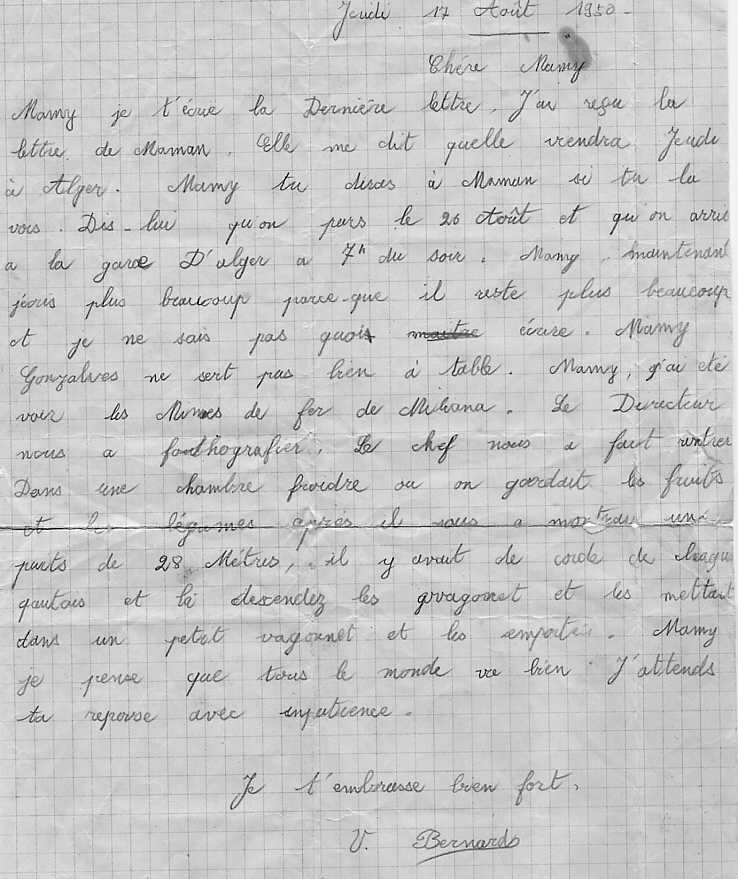 Jeudi 17 Août 1950 -
Chére Mamy
Mamy je t'écrie la Dernière lettre. J'ai reçu la
lettre de Maman. Elle me dit quelle viendra Jeudi
à Alger. Mamy tu diras à Maman si tu la
vois. Dis-lui qu'on pars le 26 Août et qu'on arris
a la gare D'alger a 7h du soir. Mamy, maintenant
jécris plus beaucoup parce-que il reste plus beaucoup
et je ne sais pas quois maitre écrire. Mamy
Gonzalves ne sert pas bien à table. Mamy, j'ai été
voir les Mines de fer de Miliana. Le Directeur
nous a fothografier. Le chef nous a fait rentrer
Dans une chambre froidre ou on gardait les fruits
et les légumes après il nous a montrai un
puits de 28 Métres, il y avait de corde de
et descendez les vagonet et les mettait
dans un petit vagonnet et les emportai. Mamy
je pense que tous le monde va bien. J'attends
ta reponse avec impatience.
Je t'embrasse bien fort.
V. Bernard